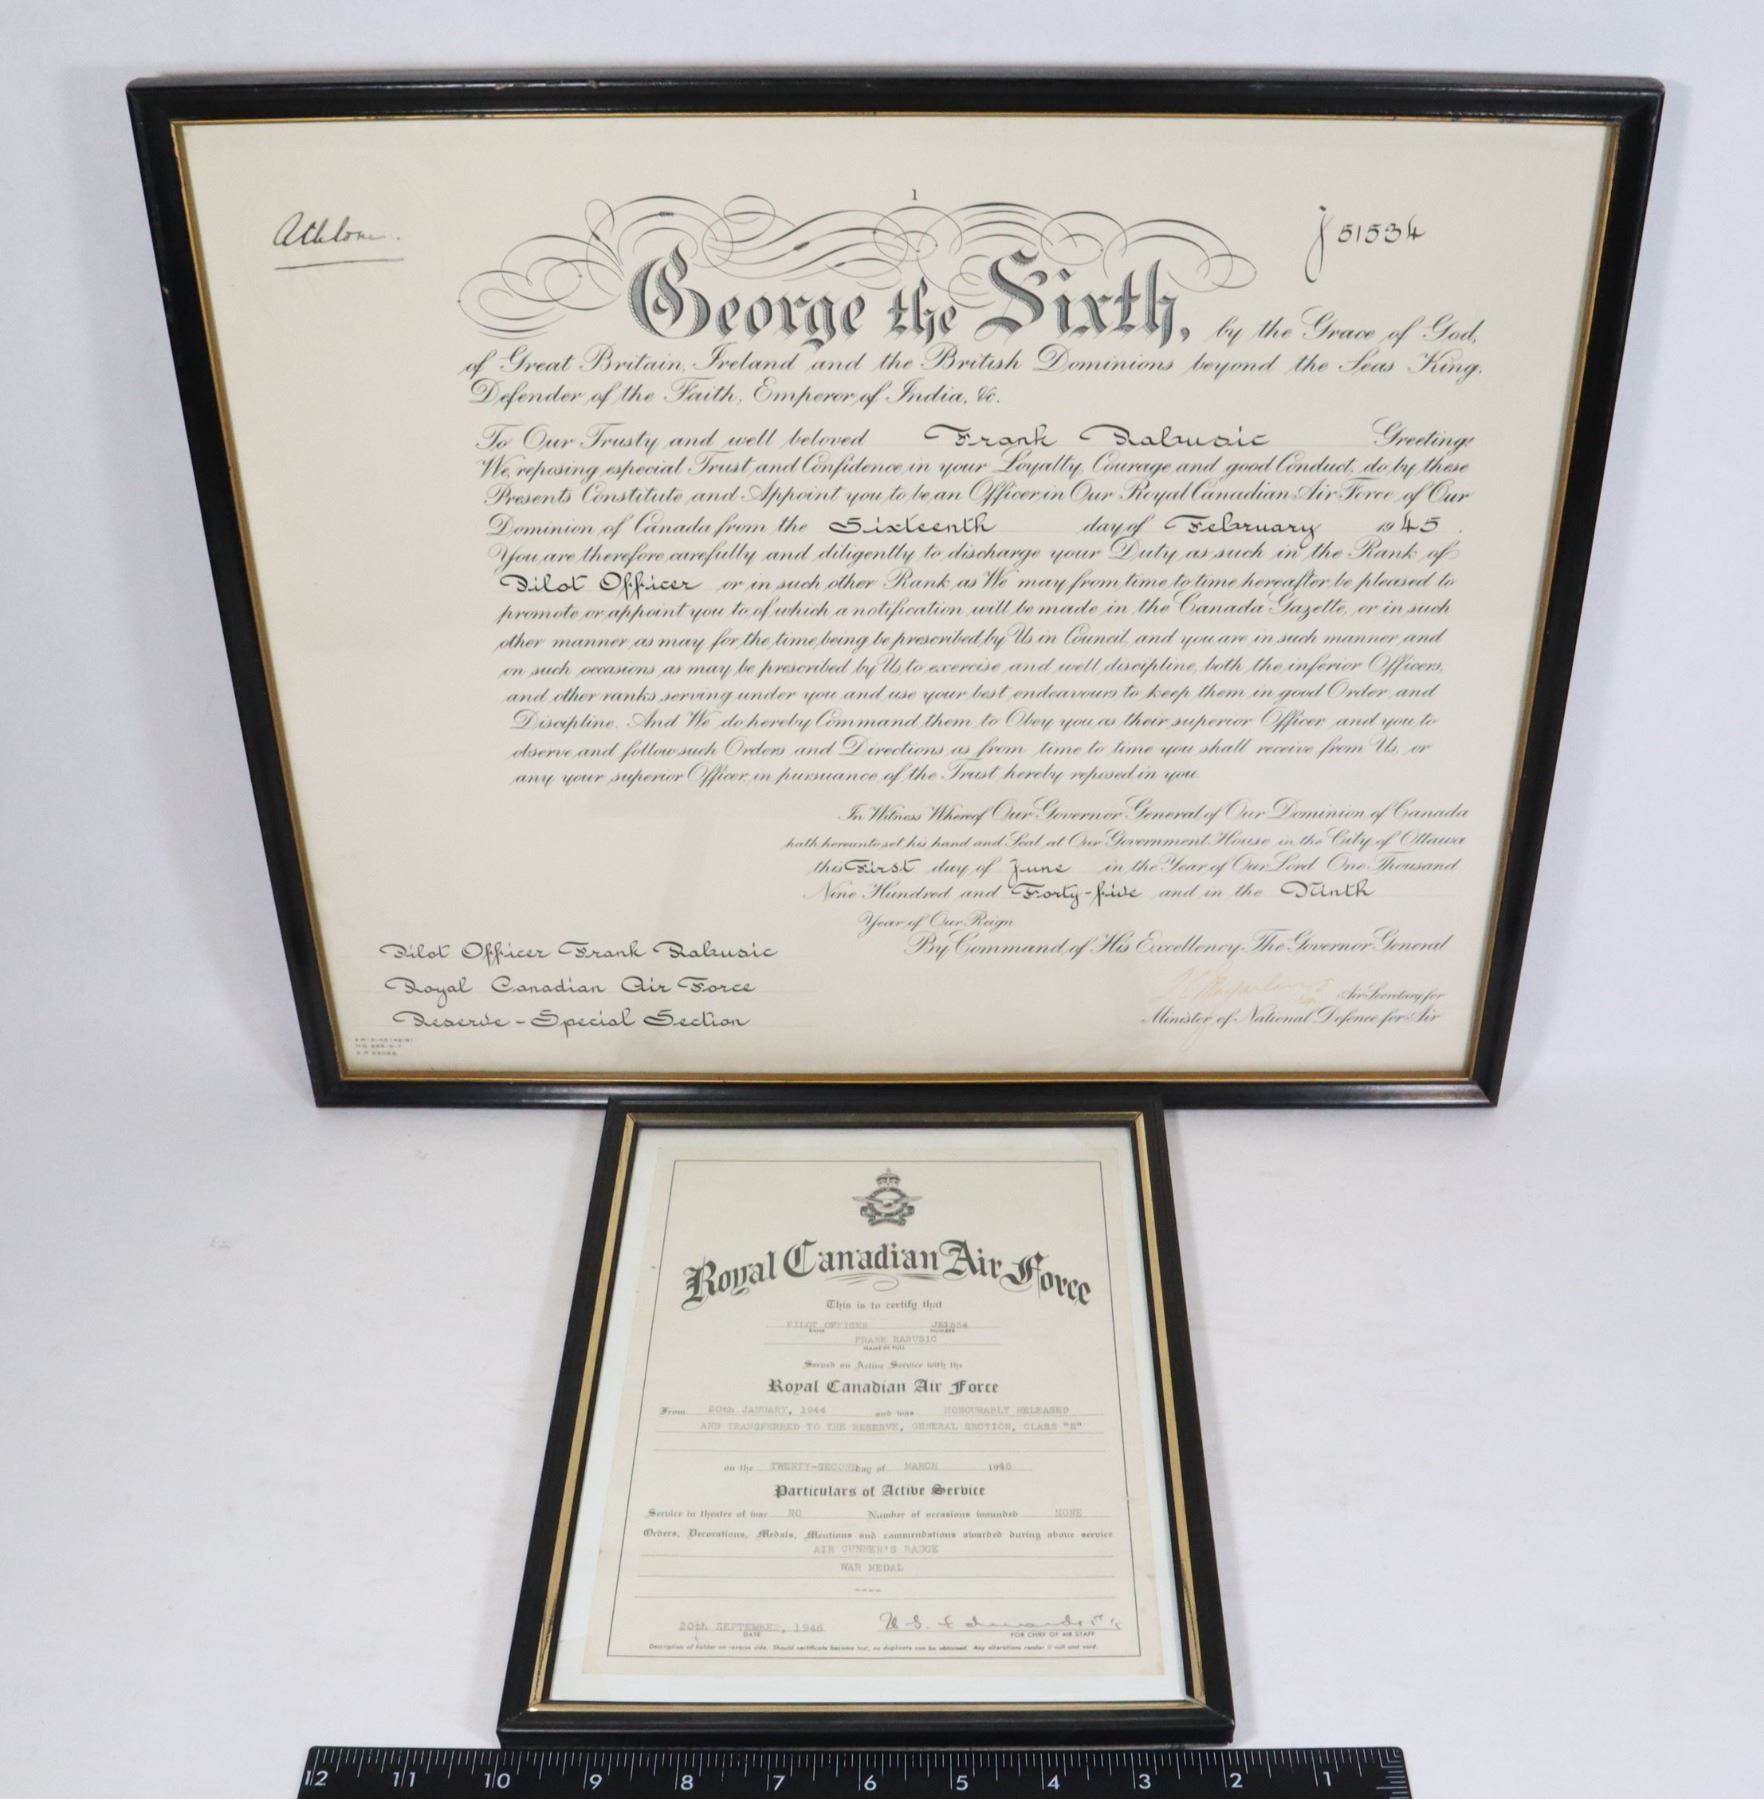 Athlone.
1
J 51534
George the Sixth, by the Grace of God,
of Great Britain, Ireland and the British Dominions beyond the Seas King,
Defender of the Faith, Emperor of India, &c.
To Our Trusty and well beloved Frank Rabusic Greeting:
We, reposing especial Trust and Confidence in your Loyalty, Courage and good Conduct, do by these
Presents Constitute and Appoint you to be an Officer in Our Royal Canadian Air Force of Our
Dominion of Canada from the Sixteenth day of February 1945.
You are therefore carefully and diligently to discharge your Duty as such in the Rank of
Pilot Officer or in such other Rank as We may from time to time hereafter be pleased to
promote or appoint you to, of which a notification will be made in the Canada Gazette, or in such
other manner as may for the time being be prescribed by Us in Council, and you are in such manner and
on such occasions as may be prescribed by Us to exercise and well discipline both the inferior Officers
and other ranks serving under you and use your best endeavours to keep them in good Order and
Discipline. And We do hereby Command them to Obey you as their superior Officer, and you to
observe and follow such Orders and Directions as from time to time you shall receive from Us, or
any your superior Officer, in pursuance of the Trust hereby reposed in you.
In Witness Whereof Our Governor General of Our Dominion of Canada
hath hereunto set his hand and Seal at Our Government House in the City of Ottawa
this First day of June in the Year of Our Lord One Thousand
Nine Hundred and Forty-five and in the Ninth
Year of Our Reign
By Command of His Excellency The Governor General
Air Secretary for
Minister of National Defence for Air
Pilot Officer Frank Rabusic
Royal Canadian Air Force
Reserve - Special Section
Royal Canadian Air Force
This is to certify that
PILOT OFFICER J51534
RANK NUMBER
FRANK RABUSIC
NAME IN FULL
Served on Active Service with the
Royal Canadian Air Force
From 20th JANUARY, 1944 and was HONOURABLY RELEASED
AND TRANSFERRED TO THE RESERVE, GENERAL SECTION, CLASS "E"
on the TWENTY-SECOND day of MARCH 1945
Particulars of Active Service
Service in theatre of war NO Number of occasions wounded NONE
Orders, Decorations, Medals, Mentions and commendations awarded during above service
AIR GUNNER'S BADGE
WAR MEDAL
----
20th SEPTEMBER, 1946
DATE
FOR CHIEF OF AIR STAFF
Description of holder on reverse side. Should certificate become lost, no duplicate can be obtained. Any alterations render it null and void.
12 11 10 9 8 7 6 5 4 3 2 1